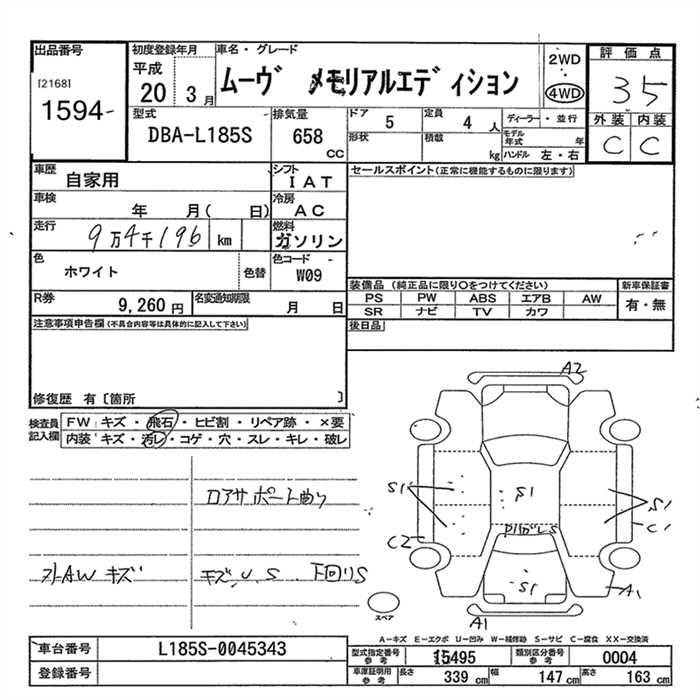 出品番号
[2168]
1594-
初度登録年月
平成
20 3月
車名・グレード
ムーヴ メモリアルエディション
2WD
4WD
評価点
35
外装 内装
C C
型式
DBA-L185S
排気量
658
CC
ドア
5
定員
4 人
形状
積載
kg
ディーラー・並行
モデル年式 年
ハンドル 左・右
車歴
自家用
シフト
IAT
車検
年 月( 日)
冷房
AC
走行
9万4千196 km
燃料
ガソリン
色
ホワイト
色替
色コード
W09
R券
9,260 円
名変通知期限
月 日
セールスポイント(正常に機能するものに限ります)
装備品 (純正品に限り○をつけてください)
PS PW ABS エアB AW
SR ナビ TV カワ
新車保証書
有・無
後日品
注意事項申告欄(不具合内容等は具体的に記入して下さい)
修復歴 有〔箇所 〕
検査員記入欄
FW キズ・飛石・ヒビ割・リペア跡・×要
内装 キズ・汚レ・コゲ・穴・スレ・キレ・破レ
コアサポート曲り
外AWキズ
キズ、U、S 下回りS
A2
S1
S1
S1
C2
C1
S1
A1
A1
スペア
A-キズ E-エクボ U-凹み W-補修跡 S-サビ C-腐食 XX-交換済
車台番号
L185S-0045343
登録番号
型式指定番号
参考
15495
類別区分番号
参考
0004
車庫証明用
参考
長さ 339 cm 幅 147 cm 高さ 163 cm